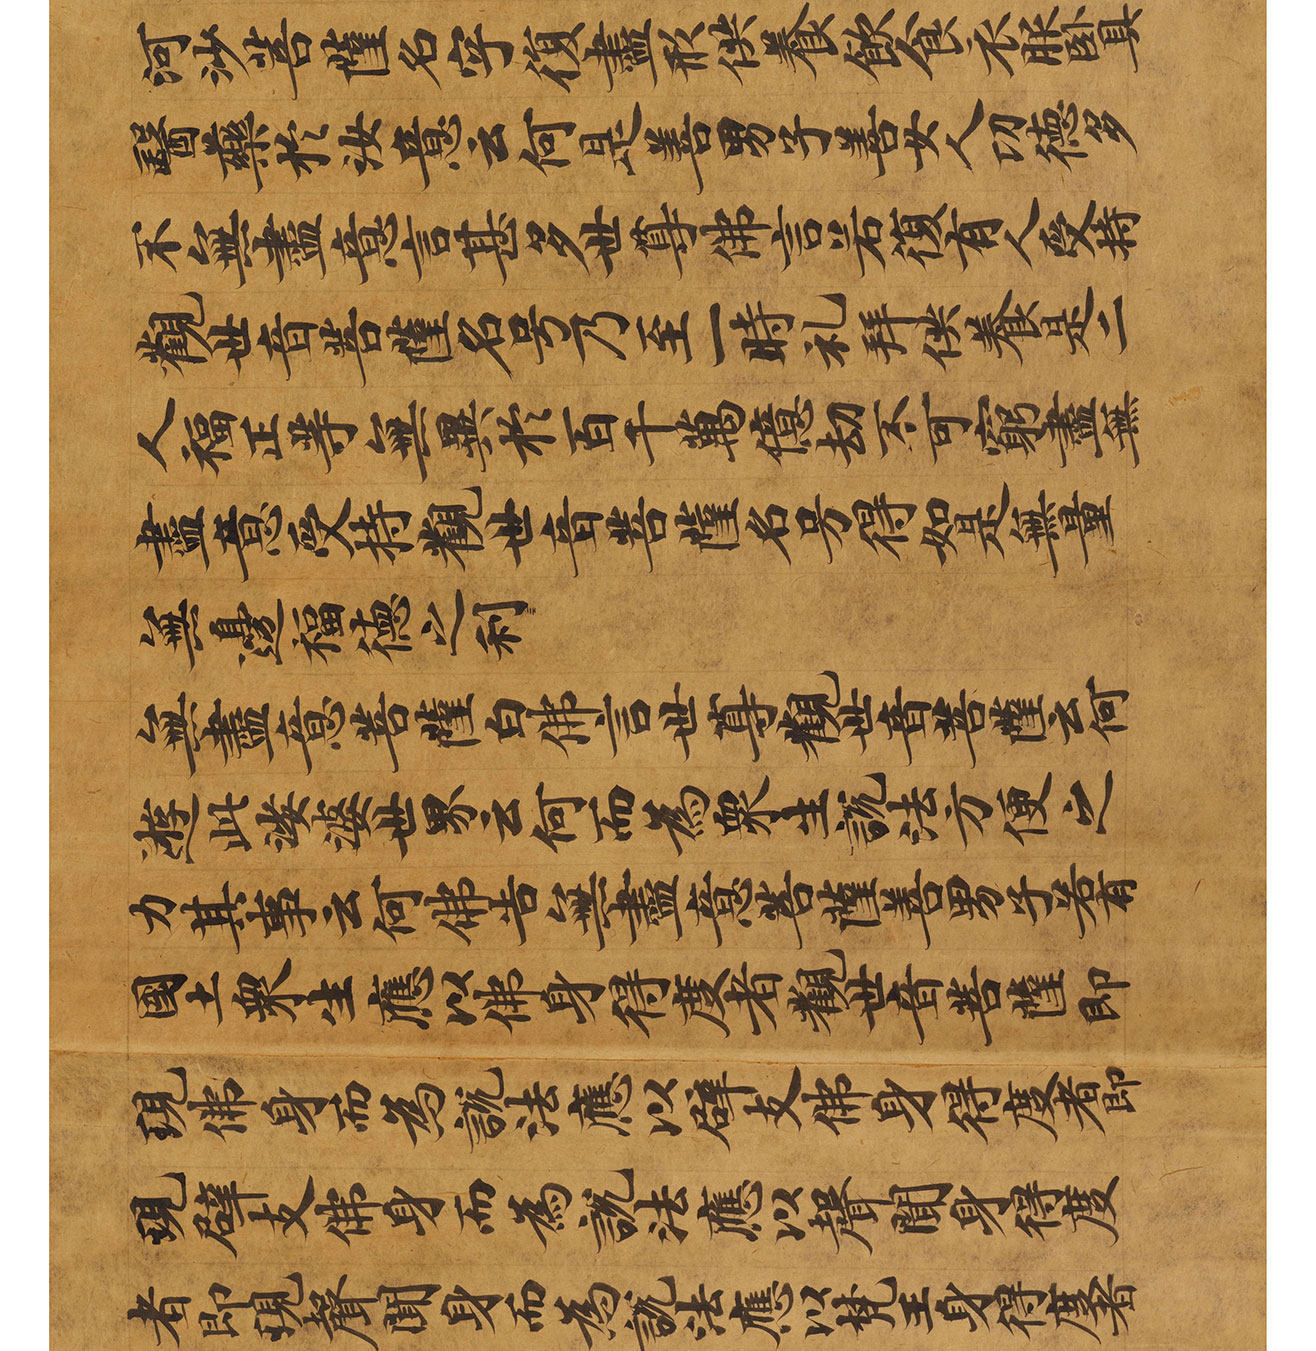 河沙菩薩名字復盡形供養飲食衣服臥具
醫藥於汝意云何是善男子善女人功德多
不無盡意言甚多世尊佛言若復有人受持
觀世音菩薩名号乃至一時礼拜供養是二
人福正等無異於百千萬億劫不可窮盡無
盡意受持觀世音菩薩名号得如是無量
無邊福德之利
無盡意菩薩白佛言世尊觀世音菩薩云何
遊此娑婆世界云何而為衆生說法方便之
力其事云何佛告無盡意菩薩善男子若有
國土衆生應以佛身得度者觀世音菩薩即
現佛身而為說法應以辟支佛身得度者即
現辟支佛身而為說法應以聲聞身得度
者即現聲聞身而為說法應以梵王身得度者